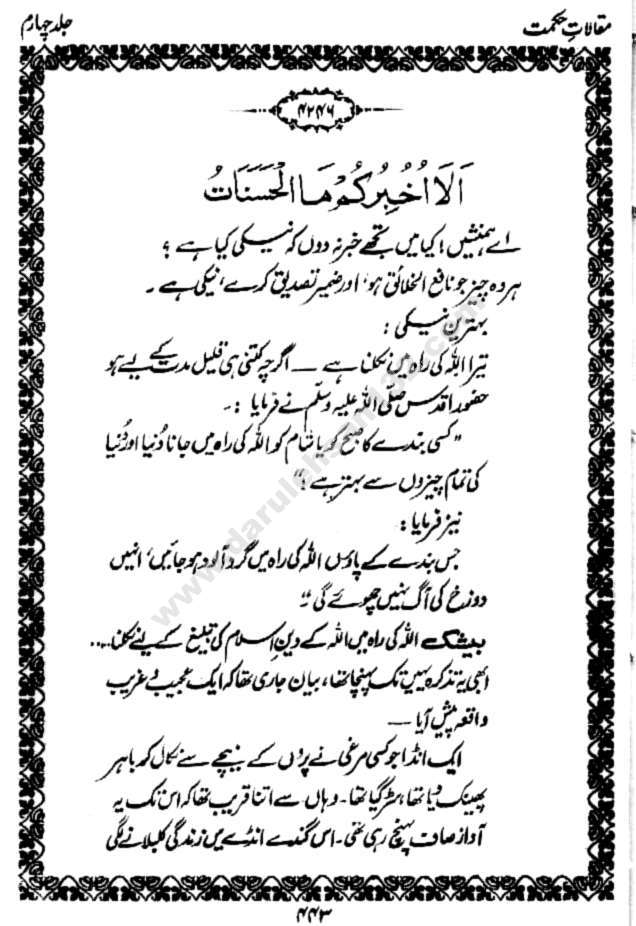 مقالاتِ حکمت
جلد چہارم
۴۲۴۶
اَلَا اُخْبِرُکُمْ مَا الْحَسَنَاتُ
اے ہمنشیں! کیا میں تجھے خبر نہ دوں کہ نیکی کیا ہے ؟
ہر وہ چیز جو نافع الخلائق ہو، اور ضمیر تصدیق کرے، نیکی ہے ۔
بہترین نیکی :
تیرا اللہ کی راہ میں نکلنا ہے — اگرچہ کتنی ہی قلیل مدت کے لیے ہو
حضور اقدس صلّی اللہ علیہ وسلّم نے فرمایا :۔
”کسی بندے کا صبح کو یا شام کو اللہ کی راہ میں جانا دُنیا اور دُنیا
کی تمام چیزوں سے بہتر ہے !“
نیز فرمایا :
جس بندے کے پاؤں اللہ کی راہ میں گرد آلود ہو جائیں، انہیں
دوزخ کی آگ نہیں چھوئے گی“
بیشک اللہ کی راہ میں اللہ کے دینِ اسلام کی تبلیغ کے لیے نکلنا ....
ابھی یہ تذکرہ یہیں تک پہنچا تھا، بیان جاری تھا کہ ایک عجیب و غریب
واقعہ پیش آیا —
ایک انڈا جو کسی مرغی نے پروں کے نیچے سے نکال کر باہر
پھینک دیا تھا، سڑ گیا تھا۔ وہاں سے اتنا قریب تھا کہ اس تک یہ
آواز صاف پہنچ رہی تھی۔ اس گندے انڈے میں زندگی کلبلانے لگی
۴۴۳
www.darulehsan